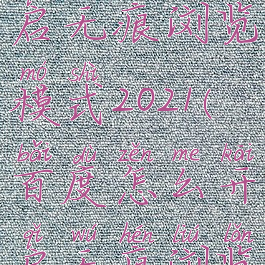 启无痕浏览
mo shi
模式2021(
bǎi dù zěn me kāi
百度怎么开
qǐ wú hén liú lǎn